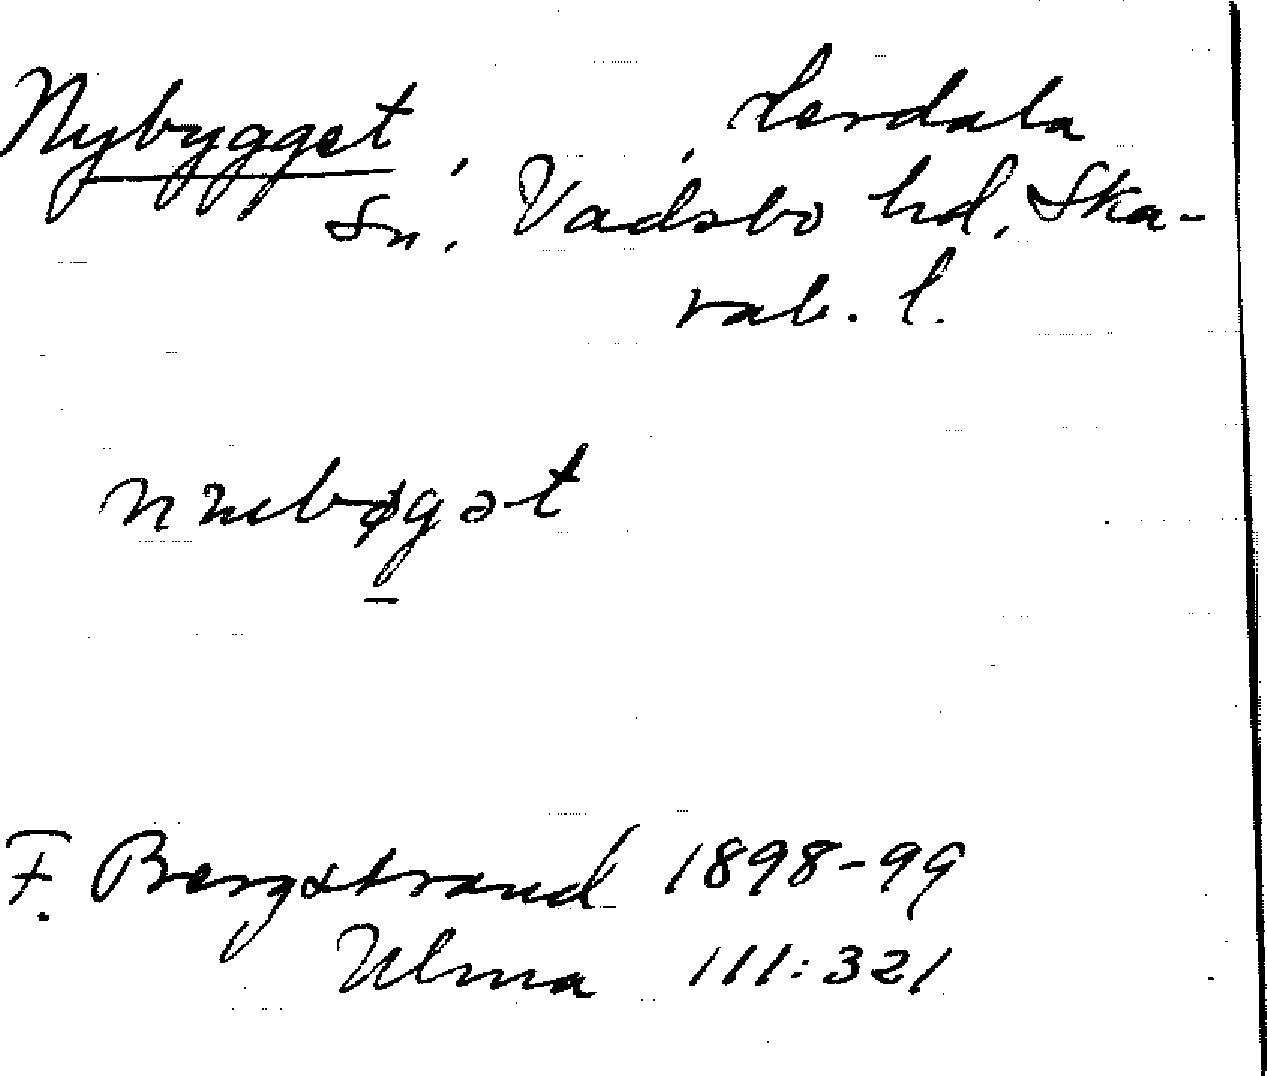 Nybygget, Lerdala
Sn., Vadsbo hd, Ska-
rab. l.
F. Bergstrand 1898-99
Ulma 111:321